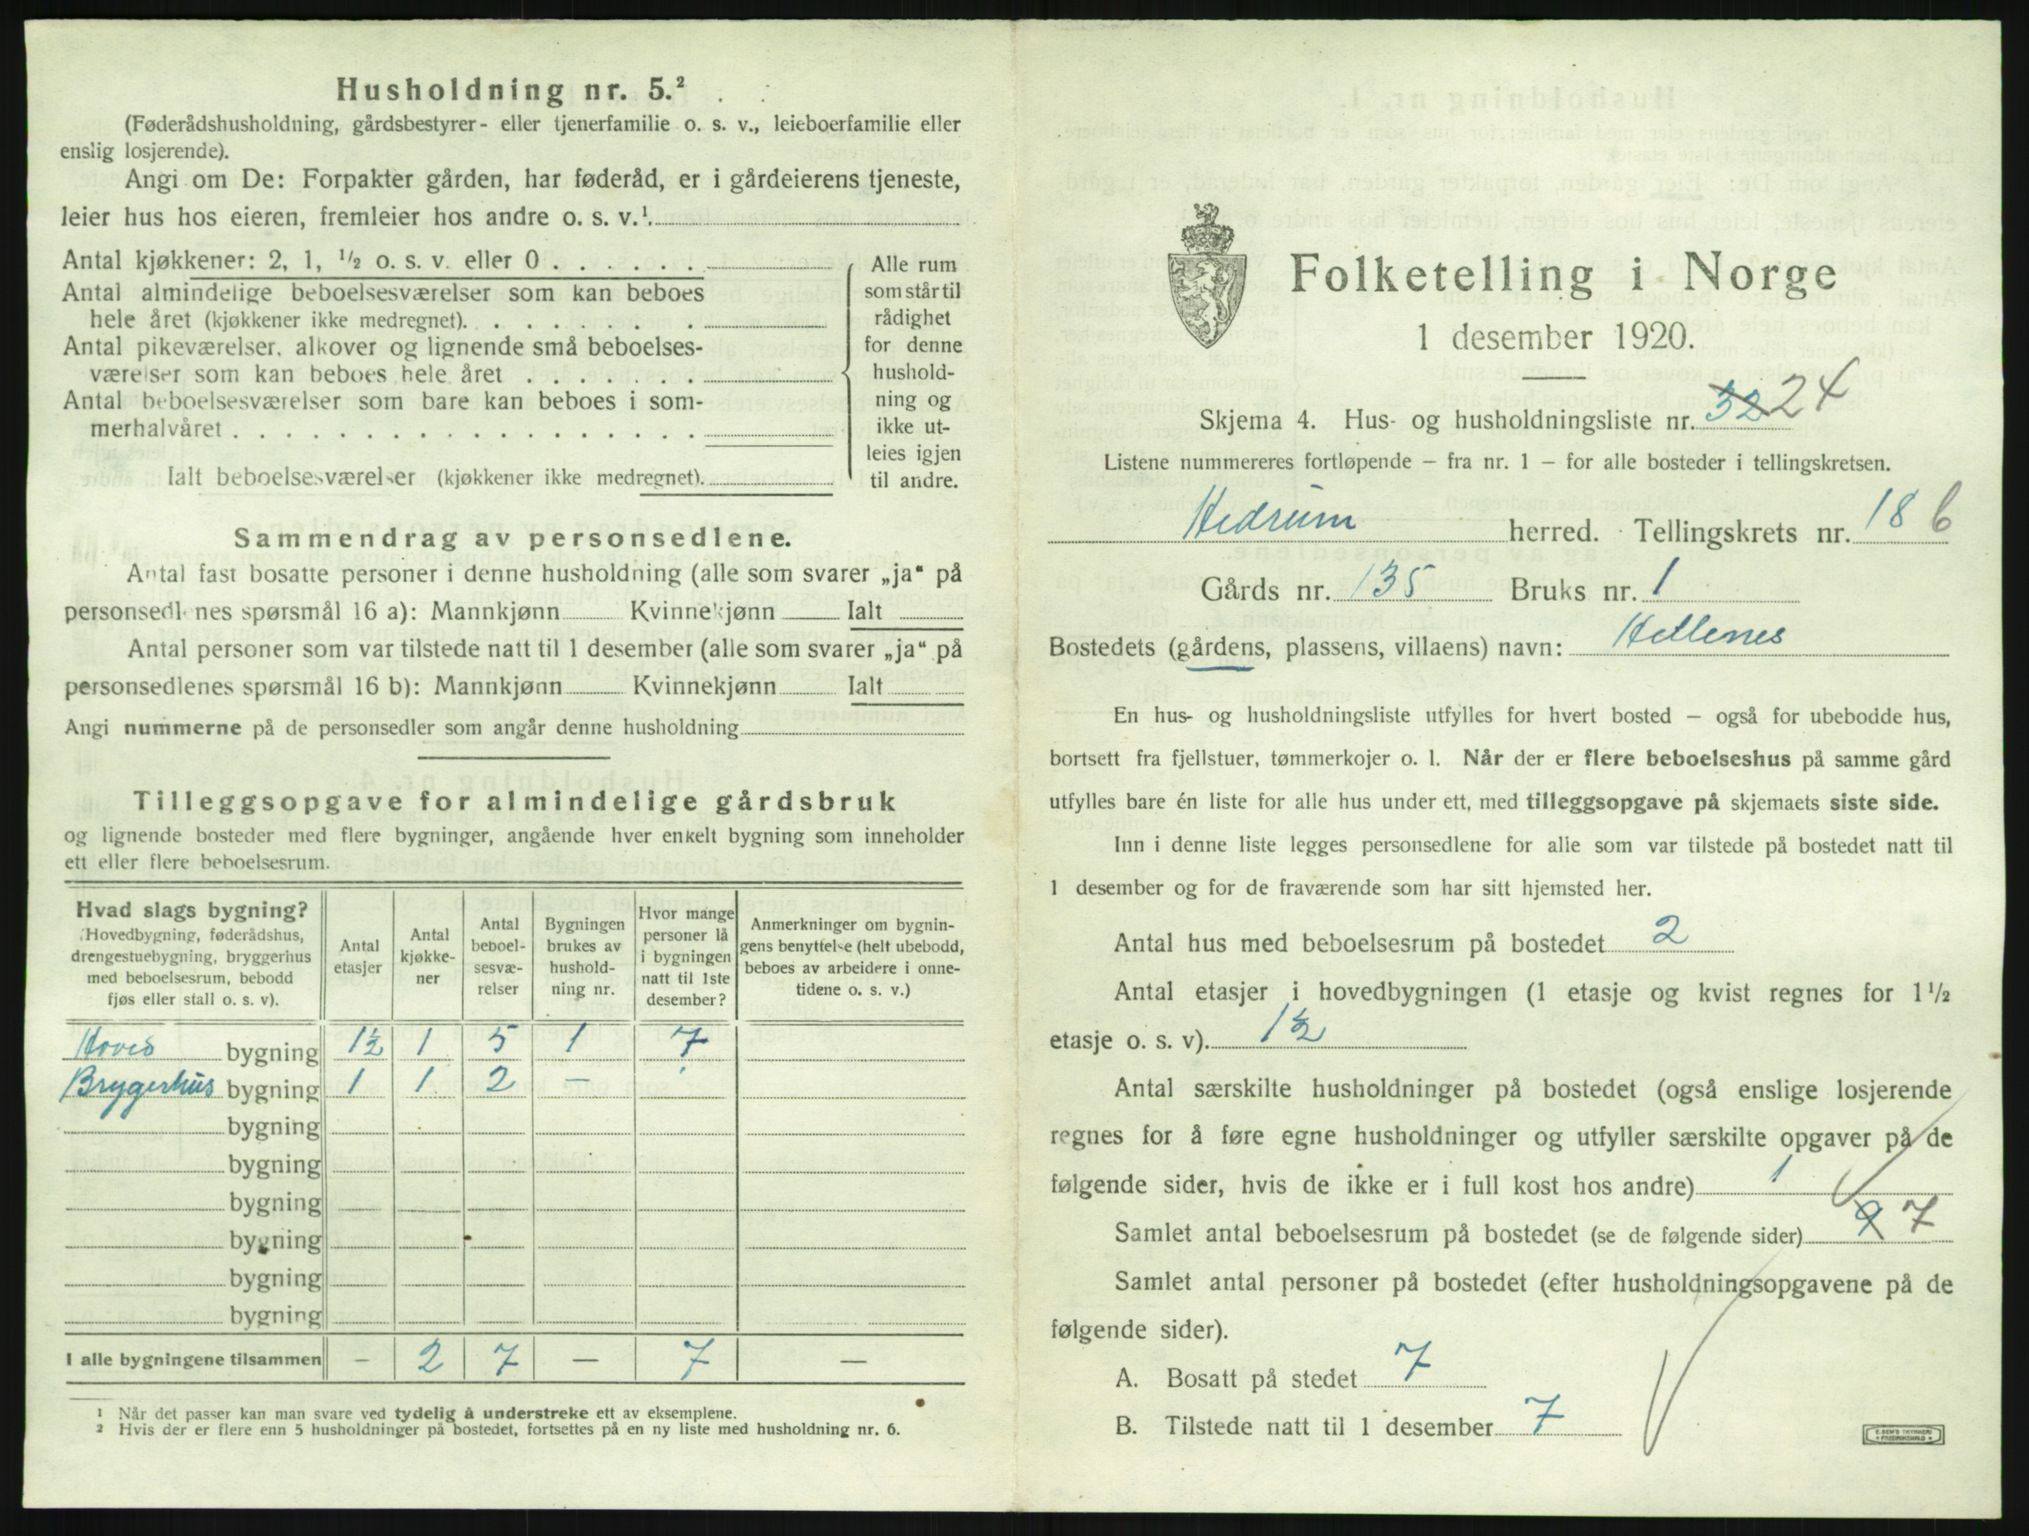 Husholdning nr. 5.²
(Føderådshusholdning, gårdsbestyrer- eller tjenerfamilie o. s. v., leieboerfamilie eller
enslig losjerende).
Angi om De: Forpakter gården, har føderåd, er i gårdeierens tjeneste,
leier hus hos eieren, fremleier hos andre o. s. v.¹
Antal kjøkkener: 2, 1, ½ o. s. v. eller 0
Antal almindelige beboelsesværelser som kan beboes
hele året (kjøkkener ikke medregnet).
Antal pikeværelser, alkover og lignende små beboelses-
værelser som kan beboes hele året
Antal beboelsesværelser som bare kan beboes i som-
merhalvåret
Ialt beboelsesværelser (kjøkkener ikke medregnet).
Alle rum
som står til
rådighet
for denne
hushold-
ning og
ikke ut-
leies igjen
til andre.
Sammendrag av personsedlene.
Antal fast bosatte personer i denne husholdning (alle som svarer „ja“ på
personsedlenes spørsmål 16 a): Mannkjønn Kvinnekjønn Ialt
Antal personer som var tilstede natt til 1 desember (alle som svarer „ja“ på
personsedlenes spørsmål 16 b): Mannkjønn Kvinnekjønn Ialt
Angi nummerne på de personsedler som angår denne husholdning
Tilleggsopgave for almindelige gårdsbruk
og lignende bosteder med flere bygninger, angående hver enkelt bygning som inneholder
ett eller flere beboelsesrum.
Hvad slags bygning?
(Hovedbygning, føderådshus,
drengestuebygning, bryggerhus
med beboelsesrum, bebodd
fjøs eller stall o. s. v).
Antal
etasjer
Antal
kjøkke-
ner
Antal
beboel-
sesvæ-
relser
Bygningen
brukes av
hushold-
ning nr.
Hvor mange
personer lå
i bygningen
natt til 1ste
desember?
Anmerkninger om bygnin-
gens benyttelse (helt ubebodd,
beboes av arbeidere i onne-
tidene o. s. v.)
Hoved bygning 1½ 1 5 1 7
Brygerhus bygning 1 1 2 —
bygning
bygning
bygning
bygning
bygning
bygning
I alle bygningene tilsammen — 2 7 — 7 —
¹ Når det passer kan man svare ved tydelig å understreke ett av eksemplene.
² Hvis der er flere enn 5 husholdninger på bostedet, fortsettes på en ny liste med husholdning nr. 6.
Folketelling i Norge
1 desember 1920.
Skjema 4. Hus- og husholdningsliste nr. 32 24
Listene nummereres fortløpende – fra nr. 1 – for alle bosteder i tellingskretsen.
Hedrum herred. Tellingskrets nr. 18 6
Gårds nr. 135 Bruks nr. 1
Bostedets (gårdens, plassens, villaens) navn: Hellenes
En hus- og husholdningsliste utfylles for hvert bosted – også for ubebodde hus,
bortsett fra fjellstuer, tømmerkojer o. l. Når der er flere beboelseshus på samme gård
utfylles bare én liste for alle hus under ett, med tilleggsopgave på skjemaets siste side.
Inn i denne liste legges personsedlene for alle som var tilstede på bostedet natt til
1 desember og for de fraværende som har sitt hjemsted her.
Antal hus med beboelsesrum på bostedet 2
Antal etasjer i hovedbygningen (1 etasje og kvist regnes for 1½
etasje o. s. v). 1½
Antal særskilte husholdninger på bostedet (også enslige losjerende
regnes for å føre egne husholdninger og utfyller særskilte opgaver på de
følgende sider, hvis de ikke er i full kost hos andre) 1
Samlet antal beboelsesrum på bostedet (se de følgende sider) 9 7
Samlet antal personer på bostedet (efter husholdningsopgavene på de
følgende sider).
A. Bosatt på stedet 7
B. Tilstede natt til 1 desember 7